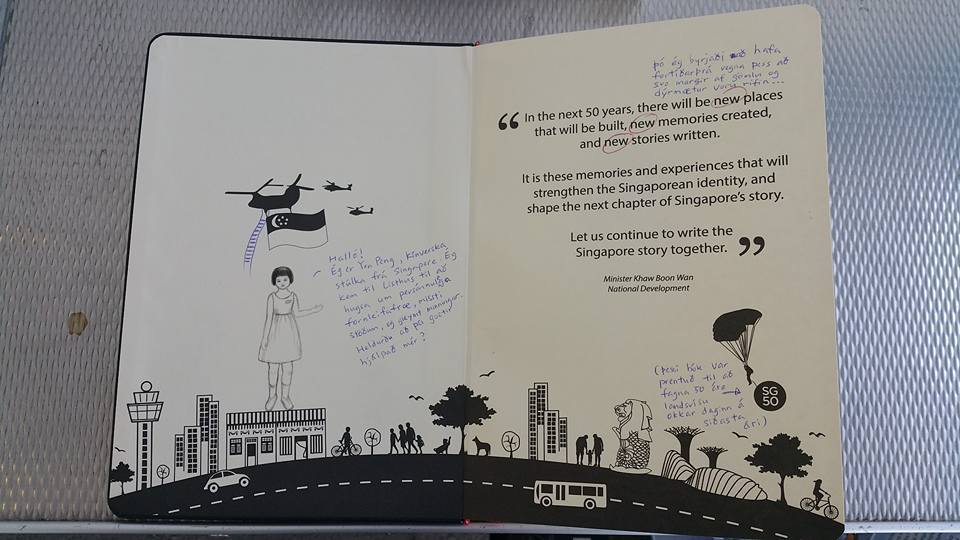 Halló!
Ég er Yen Peng, Kínverska
stúlka frá Singapore. Ég
kem til Listhus til að
hugsa um persónulega
fornleifafræ, misstí
stöðum, og geymt minningar.
Heldurðu að þú gætir
hjálpað mér?
þó ég byrjaði að hafa
fortíðarþrá vegna þess að
svo margir af gömlu og
dýrmætur voru rifin...
“ In the next 50 years, there will be new places
that will be built, new memories created,
and new stories written.
It is these memories and experiences that will
strengthen the Singaporean identity, and
shape the next chapter of Singapore's story.
Let us continue to write the
Singapore story together. ”
Minister Khaw Boon Wan
National Development
(þessi bók var
prentuð til að
fagna 50 ára
landsvísu
okkar daginn á
síðasta
ári)
SG
50